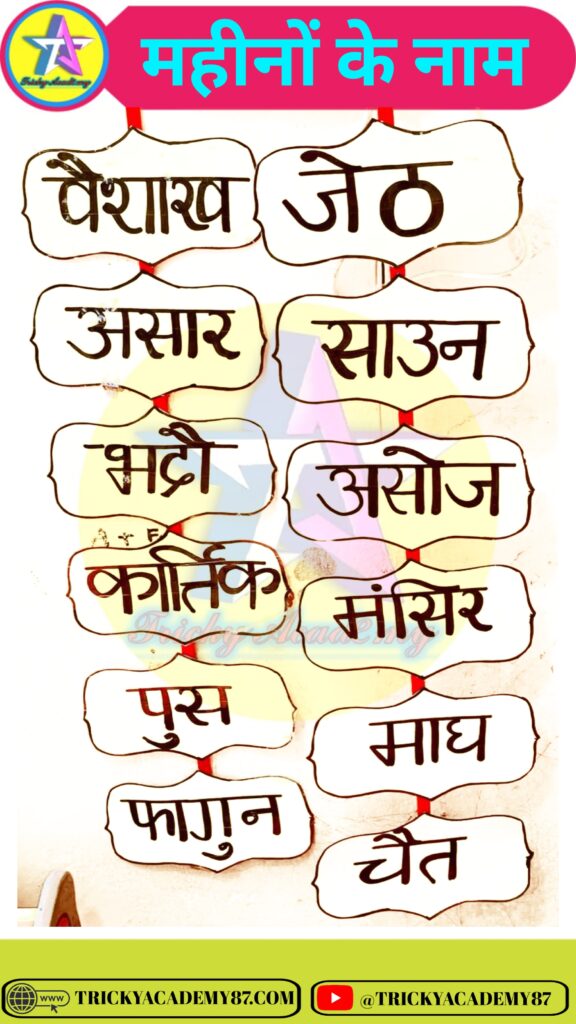 Tricky Acad2my
महीनों के नाम
वैशाख जेठ
असार साउन
भद्रौ असोज
A + F
कार्तिक मंसिर
Tricky Acad2my
पुस माघ
फागुन चैत
www TRICKYACADEMY87.COM @TRICKYACADEMY87